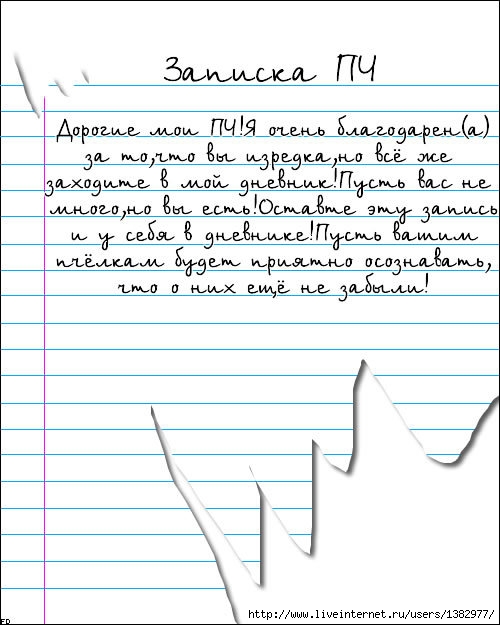 Записка ПЧ
Дорогие мои ПЧ!Я очень благодарен(а)
за то,что вы изредка,но всё же
заходите в мой дневник!Пусть вас не
много,но вы есть!Оставте эту запись
и у себя в дневнике!Пусть вашим
пчёлкам будет приятно осознавать,
что о них ещё не забыли!
http://www.liveinternet.ru/users/1382977/
FD